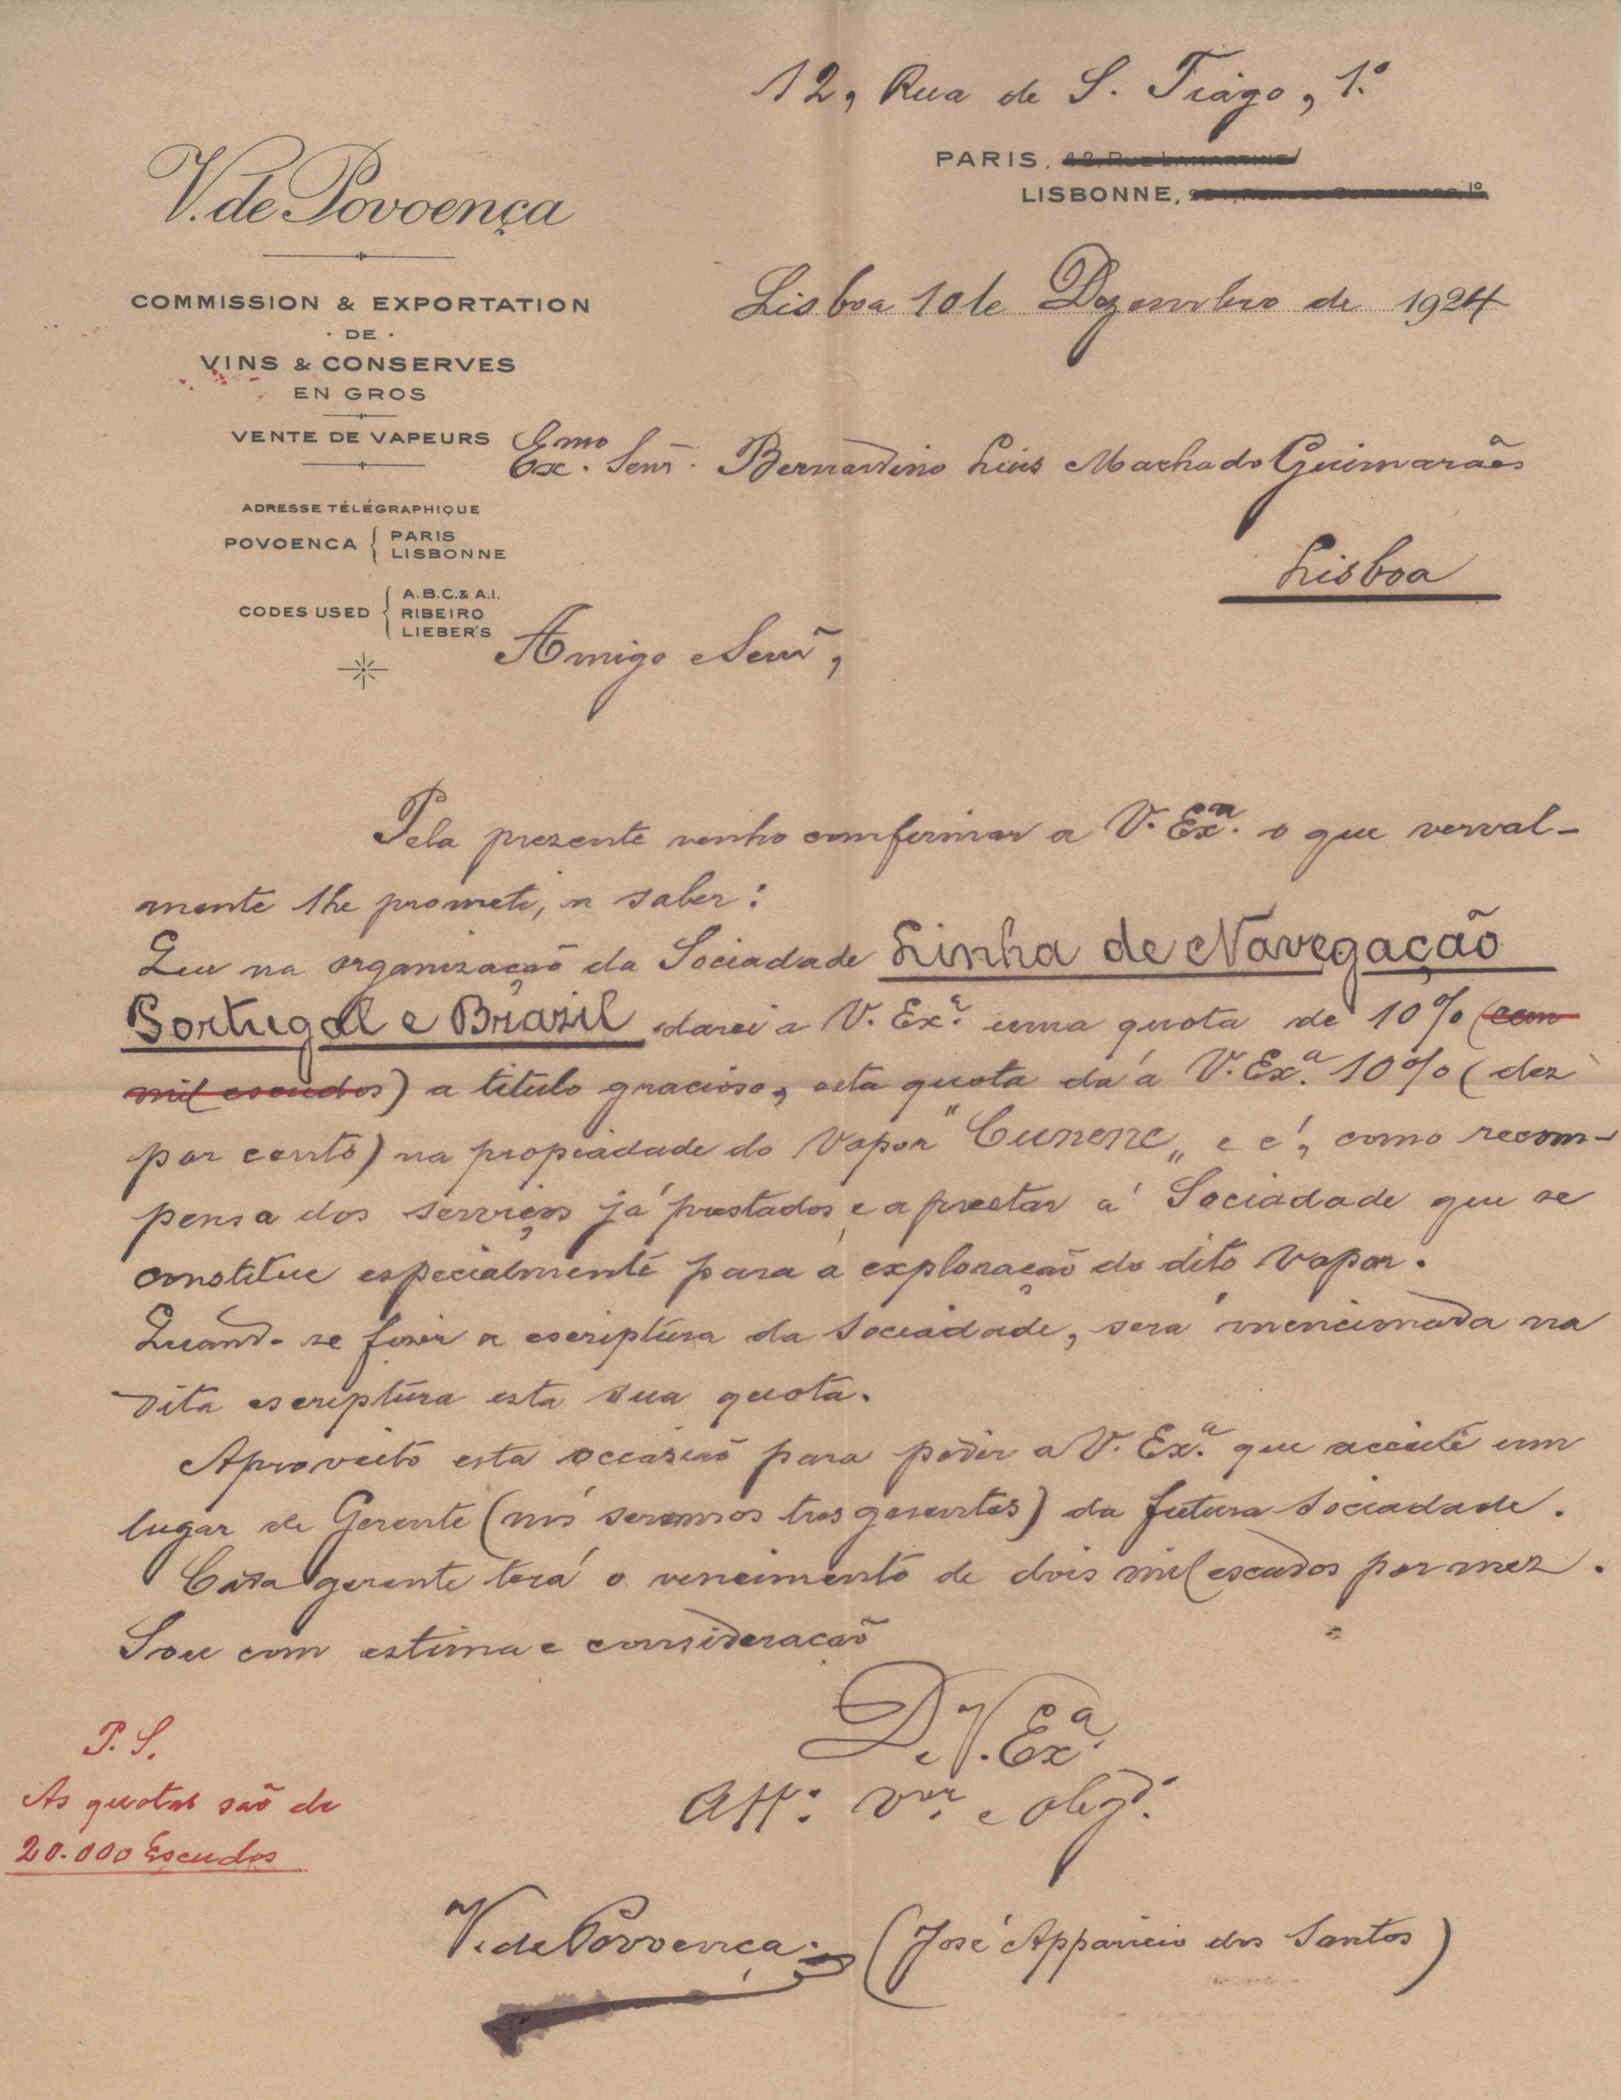 12, Rua de S. Tiago, 1.º
V. de Povoença
PARIS, 42, RUE LAMARTINE
LISBONNE, 1º
COMMISSION & EXPORTATION
· DE ·
VINS & CONSERVES
EN GROS
VENTE DE VAPEURS
ADRESSE TÉLÉGRAPHIQUE
POVOENCA { PARIS
LISBONNE
CODES USED { A.B.C. & A.I.
RIBEIRO
LIEBER'S
Lisboa 10 de Dezembro de 1924
Exmo. Senr. Bernardino Luis Machado Guimarães
Lisboa
Amigo e Senr,
Pela prezente venho comfirmar a V. Exa. o que verval-
mente lhe prometi, a saber:
Que na organisação da Sociadade Linha de Navegação
Portugal e Brazil darei a V. Ex.ª uma quota de 10% (cem
mil escudos) a titulo gracioso, esta quota dá a V. Ex.ª 10% (dez
por cento) na propriadade do Vapor "Cunene" e é, como recom-
pensa dos serviços já prestados e a prestar á Sociadade que se
constitue especialmente para a exploração do dito Vapor.
Quando se fizer a escriptura da Sociadade, será mencionada na
dita escriptura esta sua quota.
Aproveito esta occasião para pedir a V. Ex.ª que acceite um
lugar de Gerente (nós seremos tres gerentes) da futura Sociadade.
Cada gerente terá o vencimento de dois mil escudos por mez.
Sou com estima e consideração
De V. Ex.ª
Att.º Vor. e obgd.º
P. S.
As quotas são de
20.000 Escudos
V. de Povoença. (José Apparicio dos Santos)